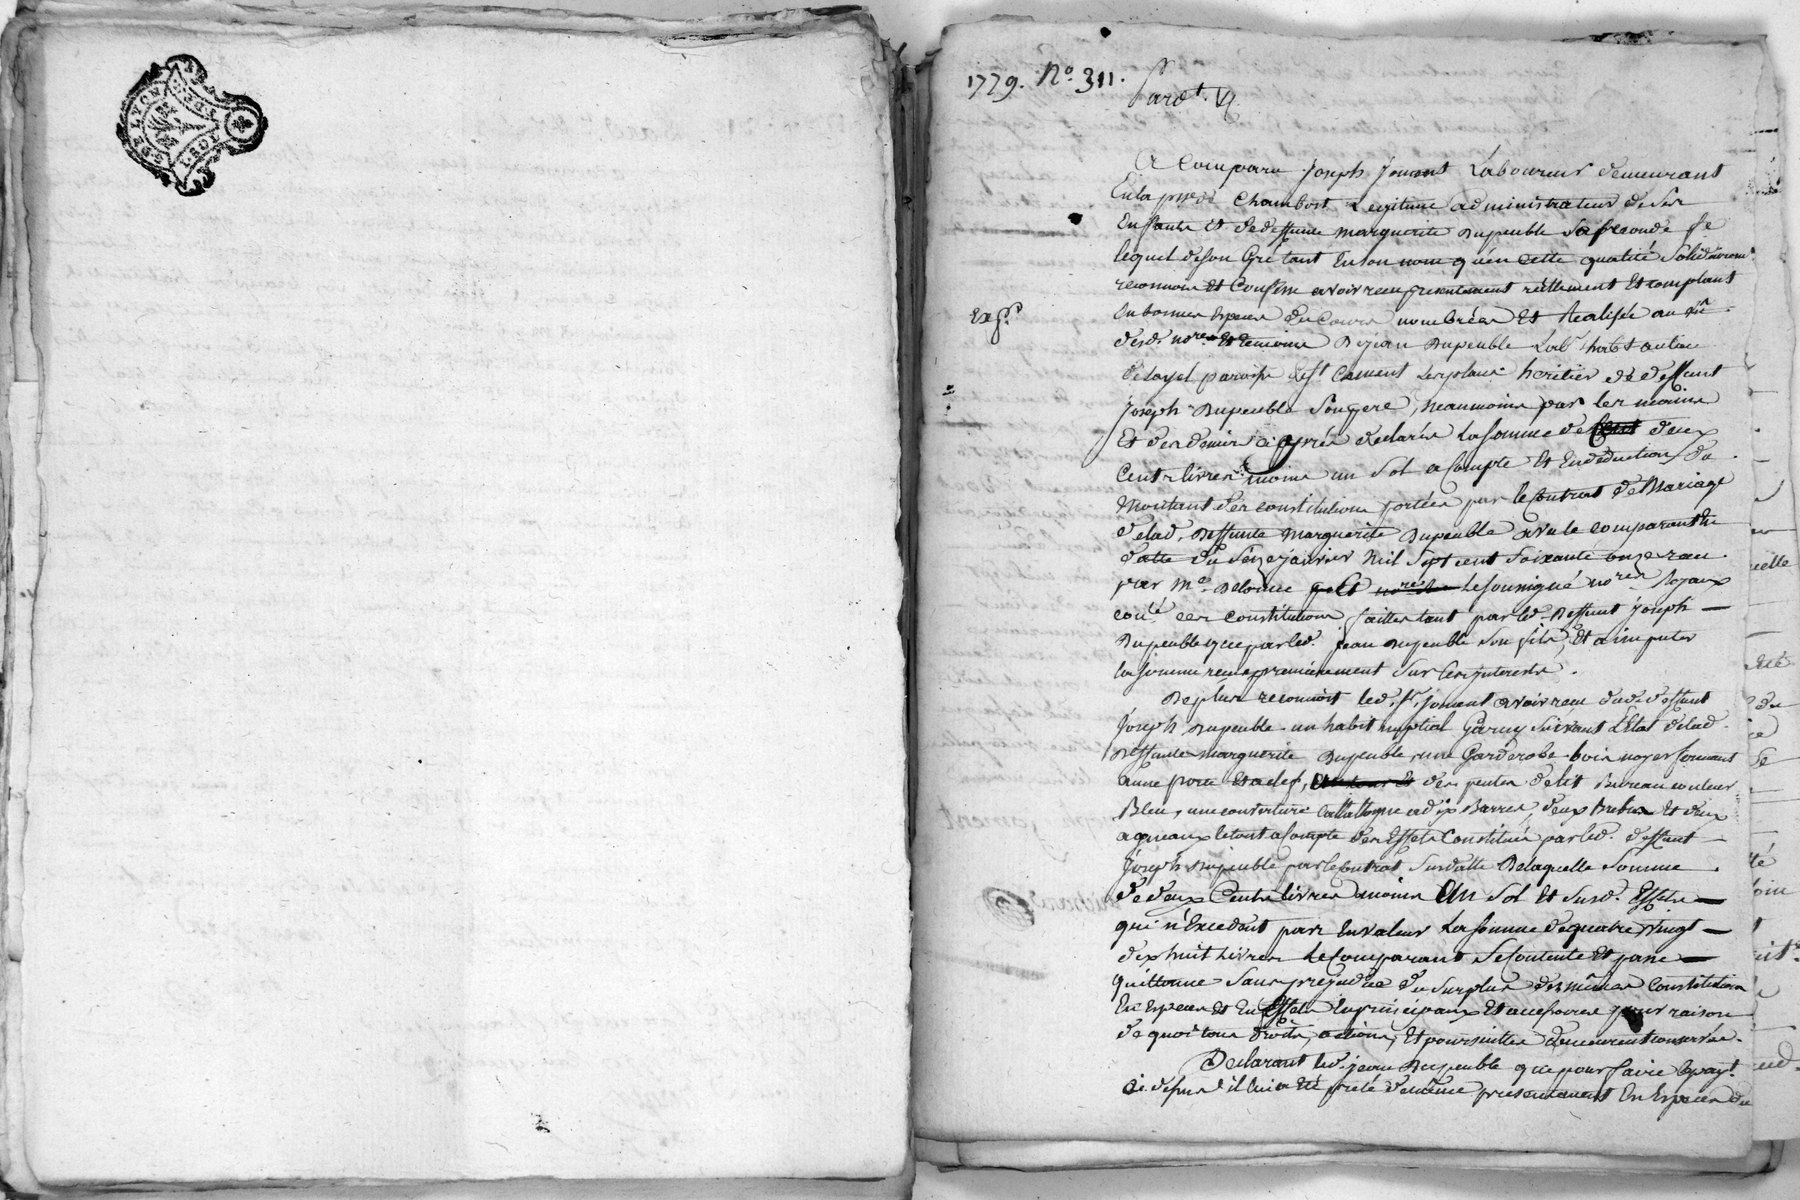 GEN. DE LYON
1779. No. 311.
Pardt.
A Comparu Joseph Joment Laboureur demeurant
En la psse de Chambost Legitime administrateur de ses
Enfants Et de deffunte Marguerite Dupeuble Sa seconde fe
lequel de son Gré tant En son nom qu'en cette qualité Solidairemt
reconnois Et Confesse avoir receu presentement réellement Et comptant
En bonnes Especes du Cours nombrées Et Realisée au
desd. nores Et temoins De jean Dupeuble Labr habt au lieu
de Layel paroisse de st Clement Les places heritier de deffunt
Joseph Dupeuble Son pere, neanmoins par les mains
Et des deniers cy après declarés La somme de deux
Cents livres moins un Sol a Compte Et En deduction du
Montant des constitutions portées par le Contrat de Mariage
de lad. deffunte Marguerite Dupeuble avec le comparant En
datte du seize janvier Mil Sept cent Soixante onze receu
par Me Delorme Et Le soussigné nores Royaux
les constitutions faittes tant par led. deffunt joseph
Dupeuble que par led. jean Dupeuble Son fils, Et a imputer
la somme receue premierement Sur les interests.
De plus reconnoit led. sr. joment avoir receu dud. deffunt
Joseph Dupeuble un habit nuptial Garny Suivant L'Etat de lad.
Deffunte Marguerite Dupeuble, une Garderobe bois noyer fermant
a une porte Et a clef, des pentes de lit Bureau couleur
Bleu, une couverture Cathalogne a dix Barres, deux Brebis Et deux
agneaux le tout a Compte des Effets Constitués par led. deffunt
Joseph Dupeuble par le Contrat Susdatté De laquelle Somme
de deux Cents livres moins Un Sol Et Susd. Effets
qui n'Excedent pas En valeur La somme de quatre Vingt
dix huit Livres Le Comparant Se Contente Et passe
quittance Sans prejudice du surplus des mêmes Constitutions
En Especes Et En Effets En principaux Et accessoires pour raison
de quoi tous droits, actions, Et poursuittes demeurent conservées.
Declarant led. jean Dupeuble que pour faire le payt.
ci dessus il lui a Eté preté de même presentement En Especes du
Expé.